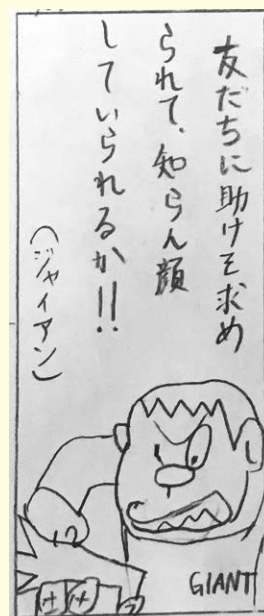 友だちに助けを求め
られて、知らん顔
していられるか!!
(ジャイアン)
GIANT